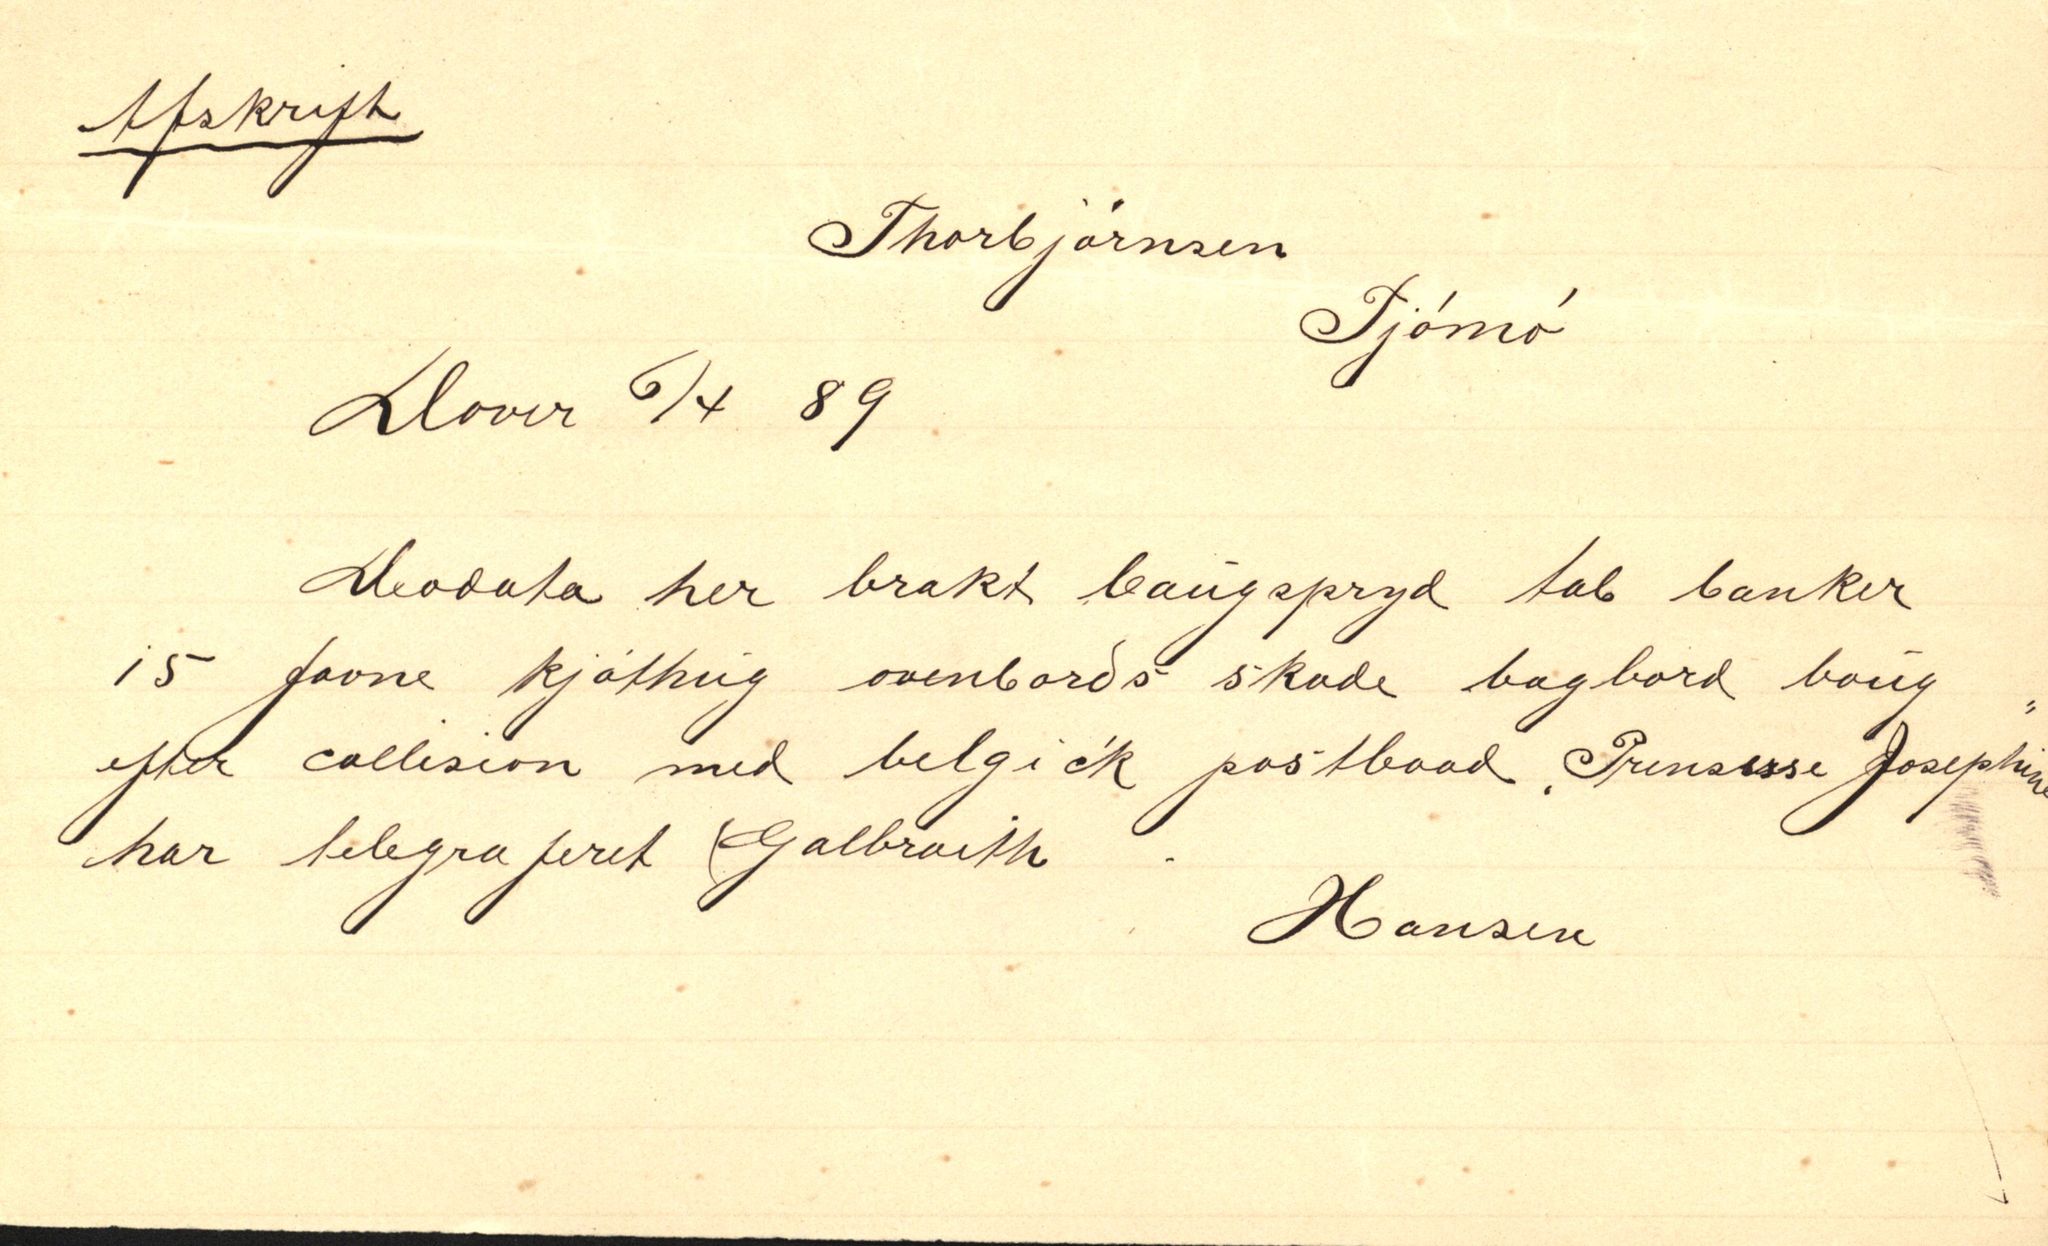 Afskrift
Thorbjörnsen
Tjömö
Dover 6/4 89
Deodata her brakt baugspryd tab banker
15 favne kjäthiig ovenbords skade bagbord boug
efter collision med belgisk postbaad „Prinsesse Josephine"
har telegraferet Galbraith.
Hansen